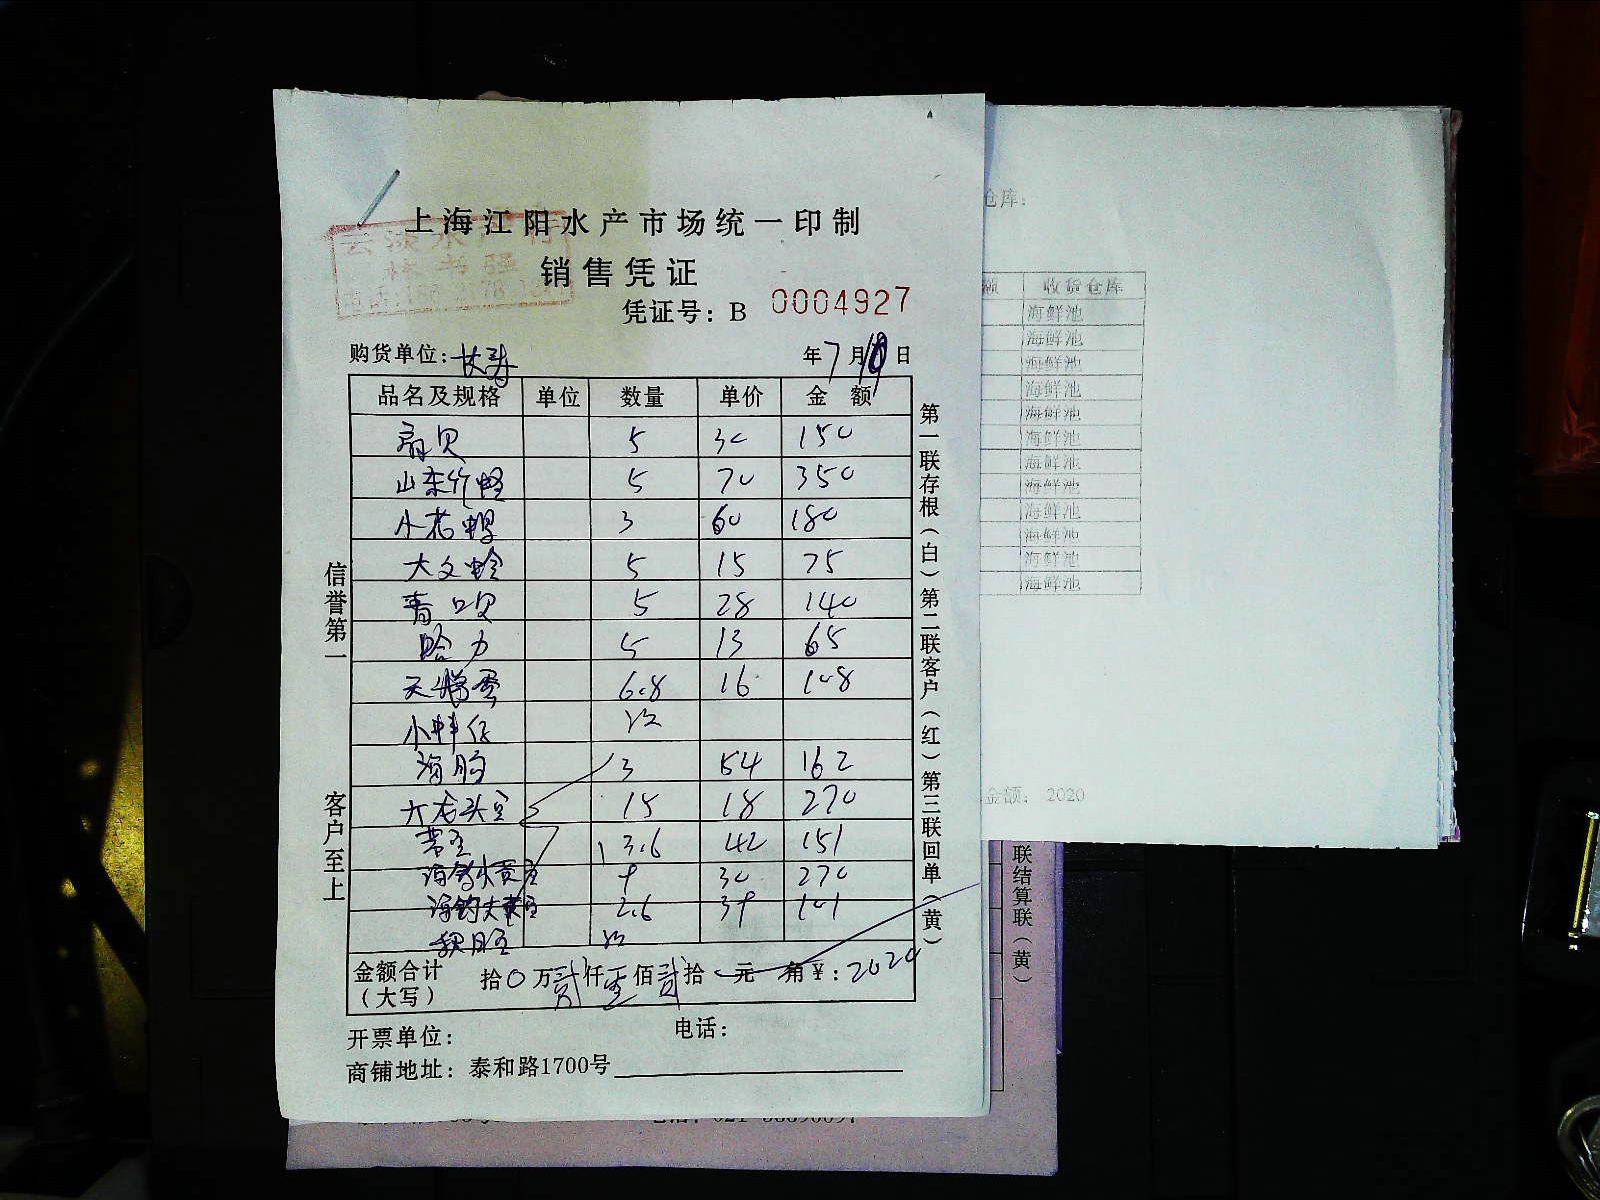 上海江阳水产市场统一印制
销售凭证
凭证号：B 0004927
购货单位：长寿 年7月10日
品名及规格 单位 数量 单价 金额
扇贝 5 30 150
山东竹蛏 5 70 350
小花螺 3 60 180
大文蛤 5 15 75
青口贝 5 28 140
哈力 5 13 65
天鹅蛋 6.8 16 108
小 次
海肠 3 54 162
大龙头 15 18 270
3.6 42 151
海钓 9 30 270
海钓 2.6 39 101
金额合计（大写） 拾0万贰仟零佰贰拾 元 角¥：2020
开票单位： 电话：
商铺地址：泰和路1700号
信誉第一
客户至上
第一联存根（白）第二联客户（红）第三联回单（黄）
仓库：
额 收货仓库
海鲜池
海鲜池
海鲜池
海鲜池
海鲜池
海鲜池
海鲜池
海鲜池
海鲜池
海鲜池
海鲜池
海鲜池
金额： 2020
联结算联（黄）